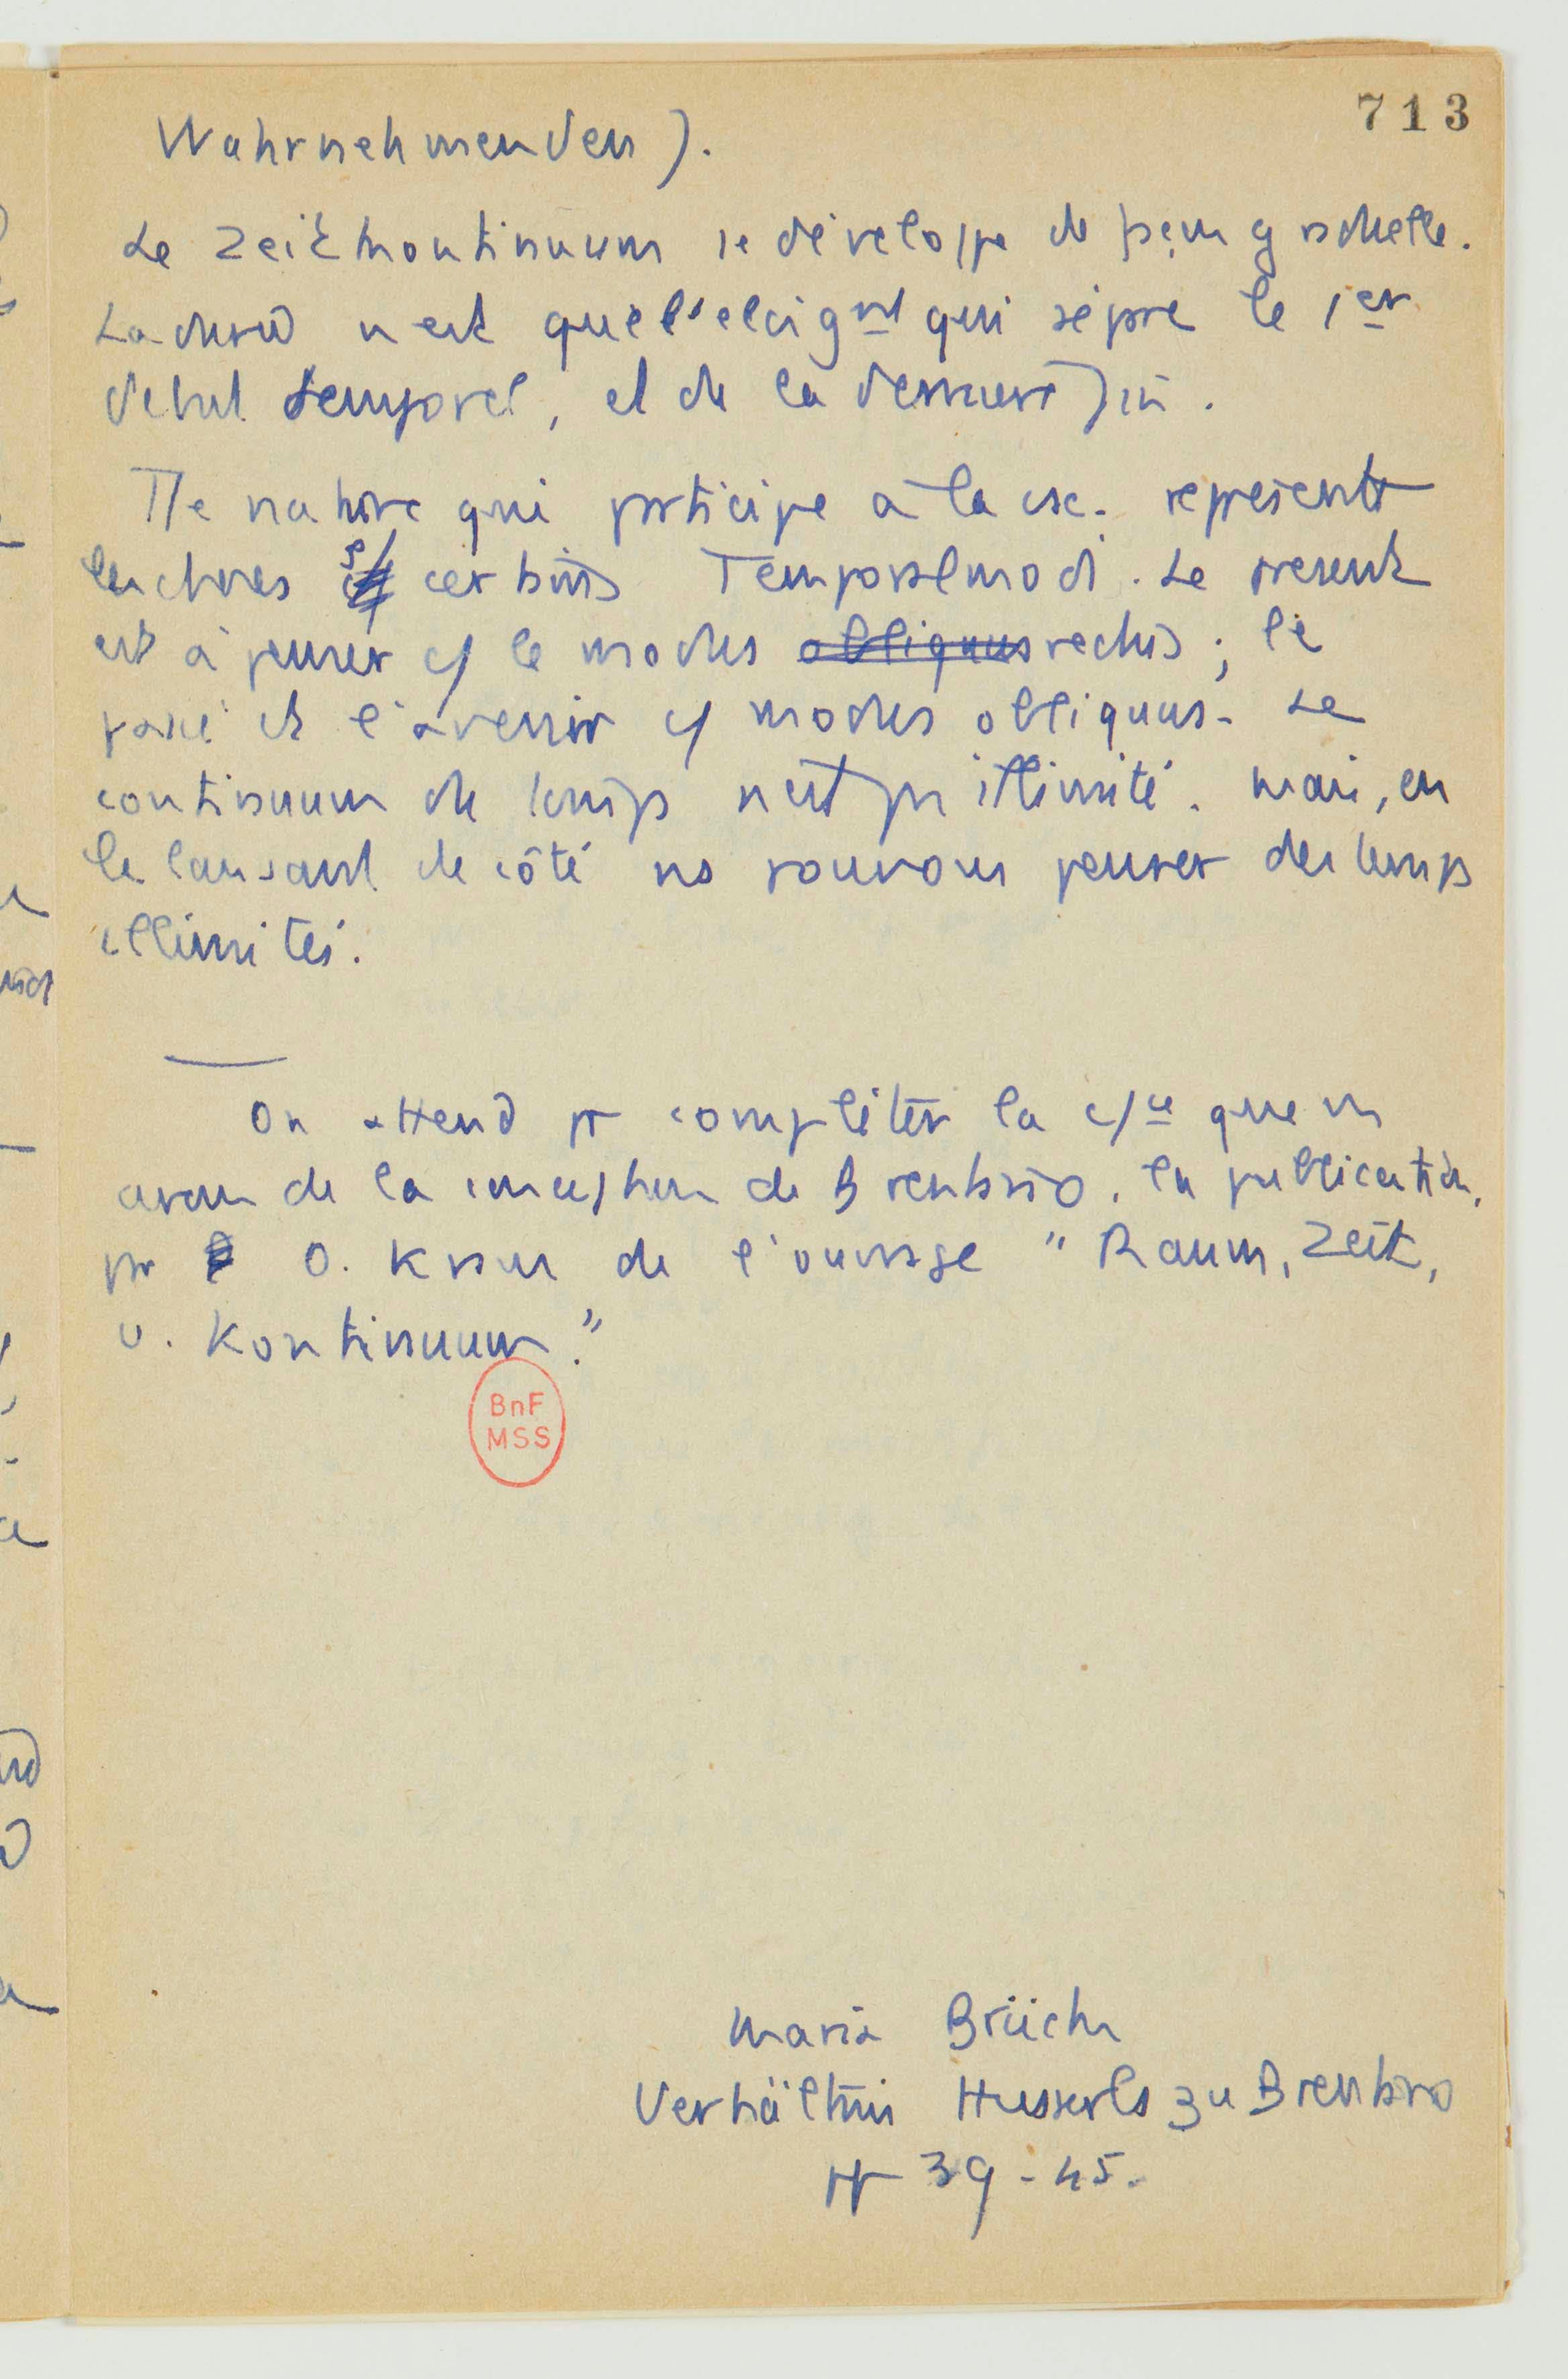 713
Wahrnehmenden).
Le Zeitkontinuum se développe de
La durée n'est que l'éloignt qui sépare le 1er
début temporel, et de la dernière fin.
Tte nature qui participe à la csc. représente
les choses s/ certains Temporalmodi. Le présent
est à penser c/ le modus obliquus rectus ; le
passé et l'avenir c/ modus obliquus. Le
continuum de temps n'est pas illimité. Mais, en
le laissant de côté ns pouvons penser des temps
illimités.
On attend pr compléter la c/ce que ns
avons de la conception de Brentano, la publication,
pr O. Kraus de l'ouvrage "Raum, Zeit,
u. Kontinuum."
BnF
MSS
Maria Brück
Verhältnis Husserls zu Brentano
pp 39-45.